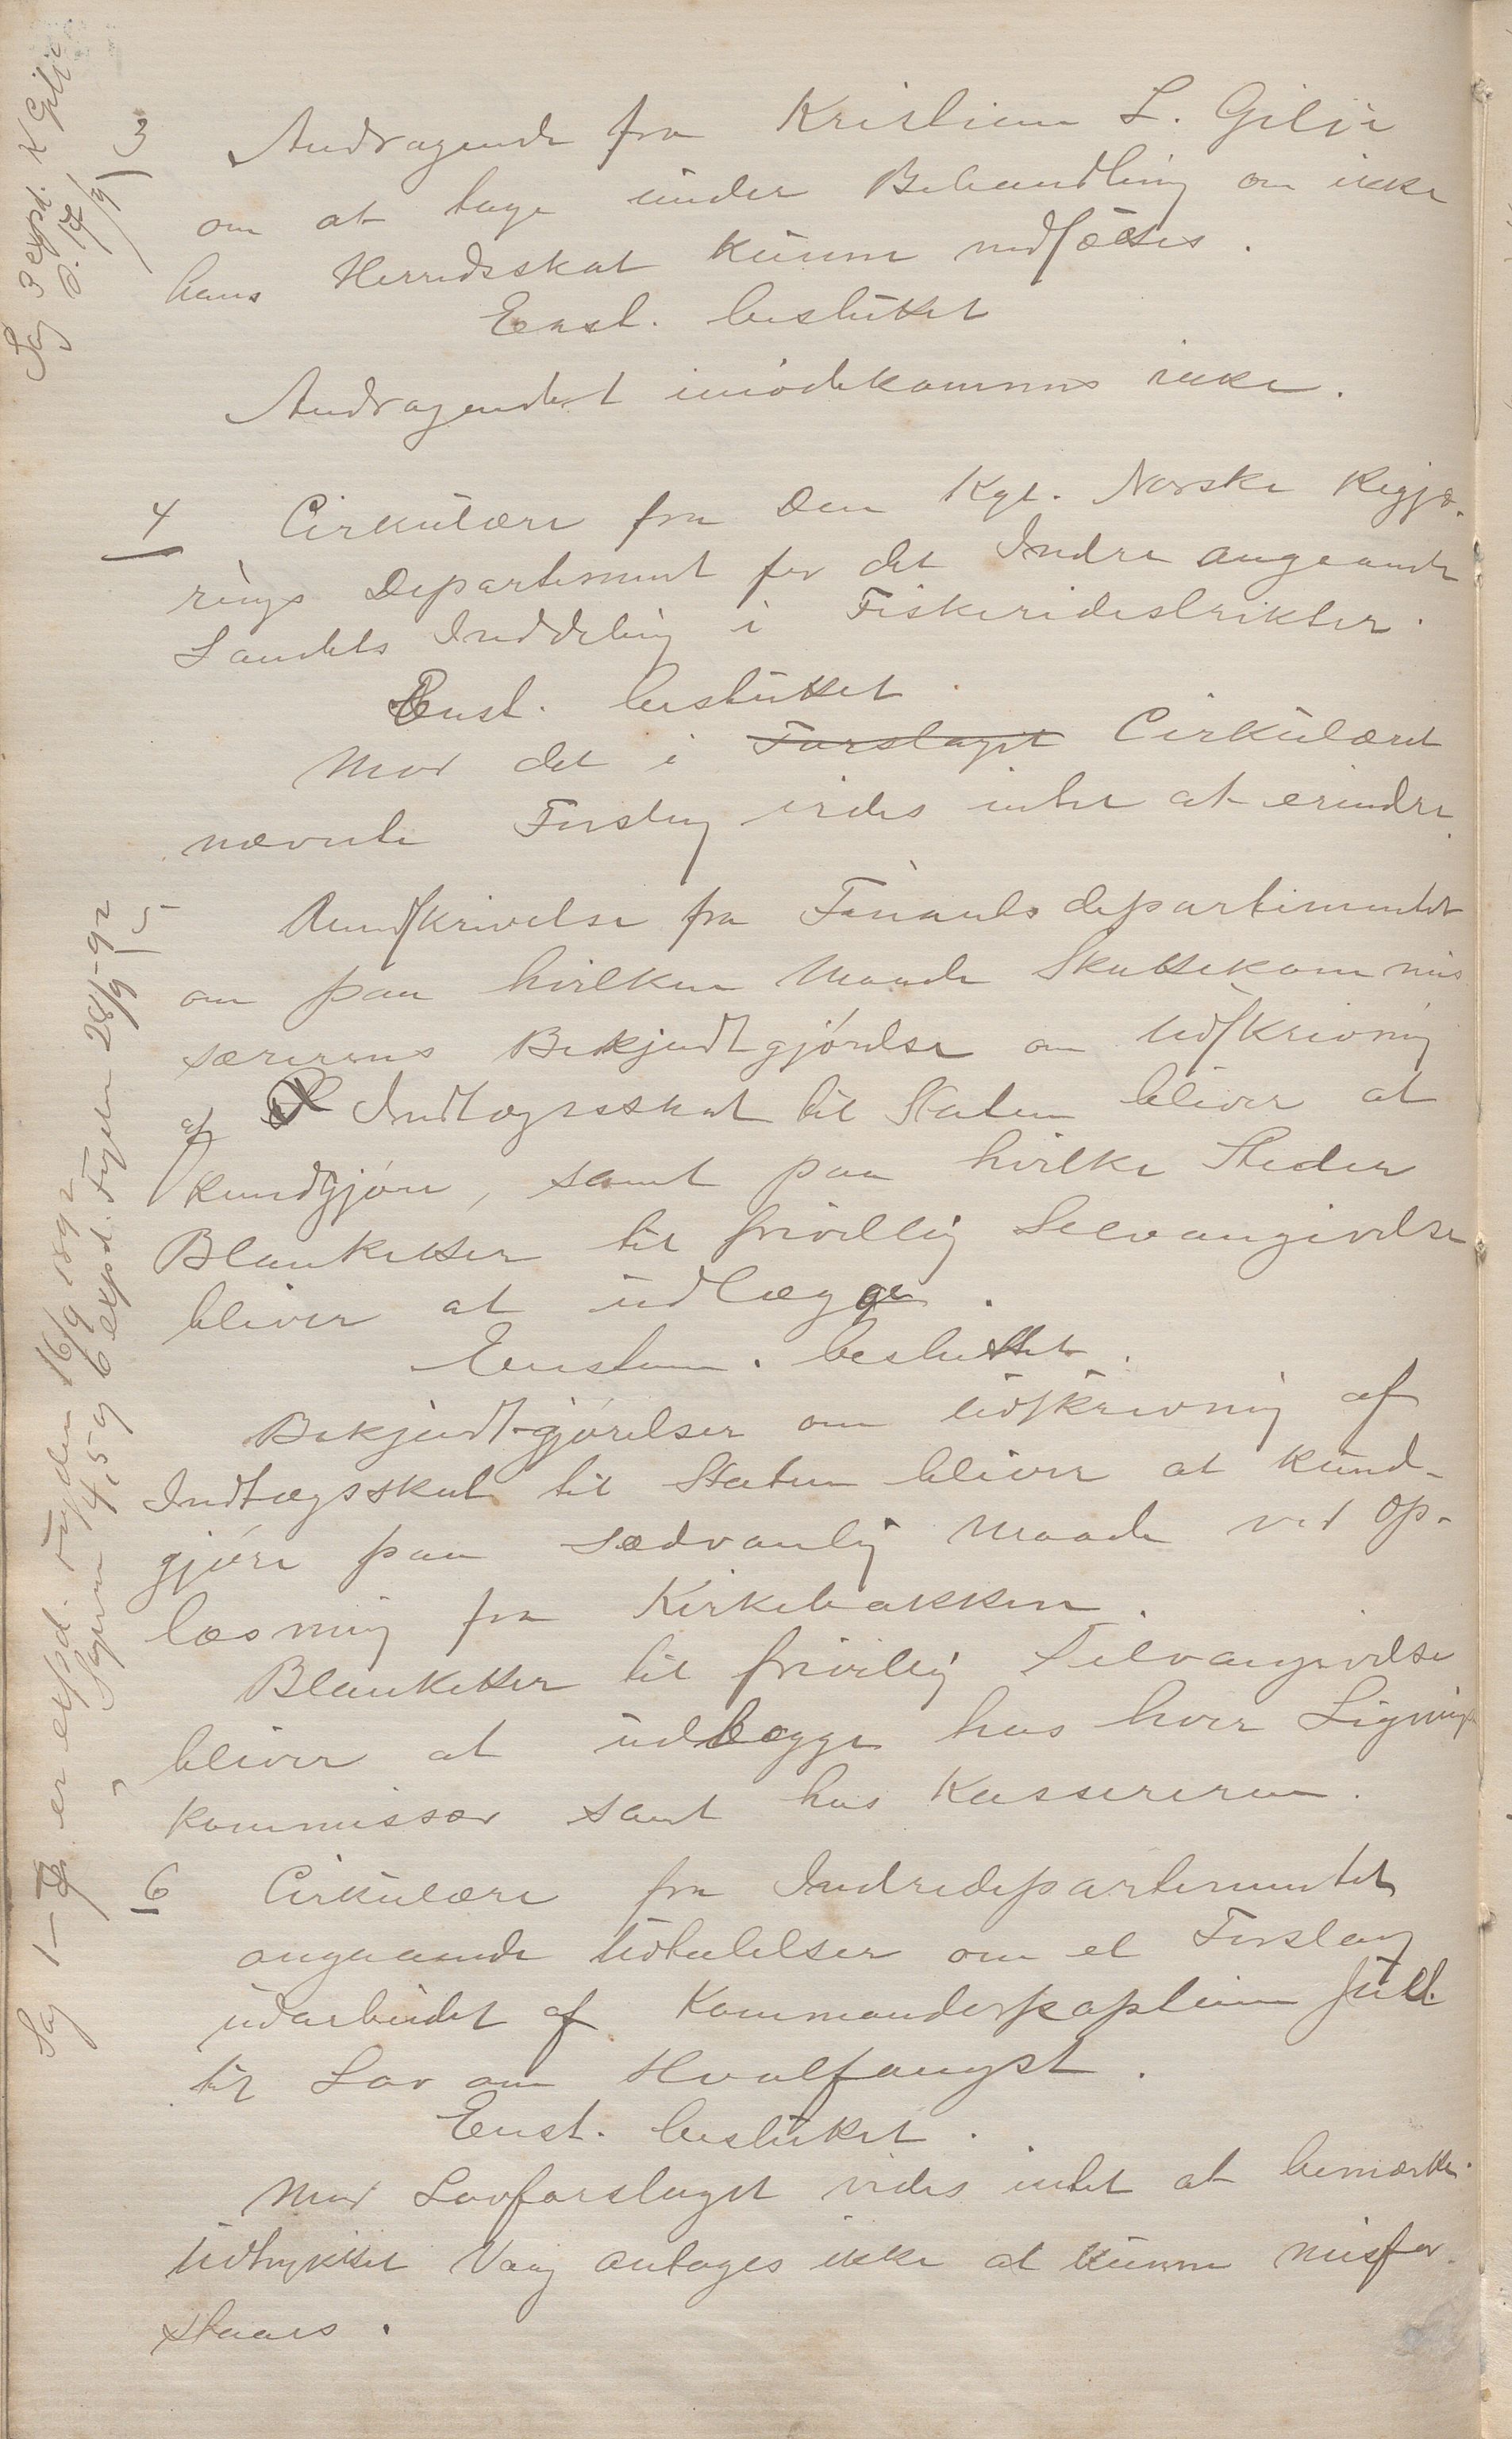 3 Andragende fra Kristian L. Gilje
om at tage under Behandling om ikke
hans Herredsskat kunne nedsættes.
Enst. besluttet
Andragendet imødekommes ikke.
4 Cirkulære fra Den Kgl. Norske Regjæ-
rings Departement for det Indre angaaende
Landets Inddeling i Fiskeridistrikter.
Enst. besluttet.
Mod det i Forslaget Cirkulæret
nævnte Forslag vides intet at erindre.
5 Rundskrivelse fra Finantsdepartementet
om paa hvilken Maade Skattekommis
særernes Bekjendtgjørelse om Udskrivning
af Indtægsskat til Staten bliver at
kundgjøre, samt paa hvilke Steder
Blanketter til frivillig Selvangivelse
bliver at udlægge.
Enstem. besluttet.
Bekjendtgjørelser om Udskrivning af
Indtægsskat til Staten bliver at kund-
gjøre paa sædvanlig Maade ved Op-
læsning fra Kirkebakken.
Blanketter til frivillig Selvangivelse
bliver at udlægge hos hver Lignings
kommissær samt hos Kassereren.
6 Cirkulære fra Indredepartementet
angaaende Udtalelser om et Forslag
udarbeidet af Kommanderkaptein Juell
til Lov om Hvalfangst.
Enst. besluttet.
Mod Lovforslaget vides intet at bemærke.
Udtrykket Vaag antages ikke at kunne misfor-
staaes.
Sag 3 expd. K Gilje
d. 17/9
Sag 1- er expd. Fogden 16/9 1892
" Sagerne 4, 5 og 6 expd. Fogden 28/9-92